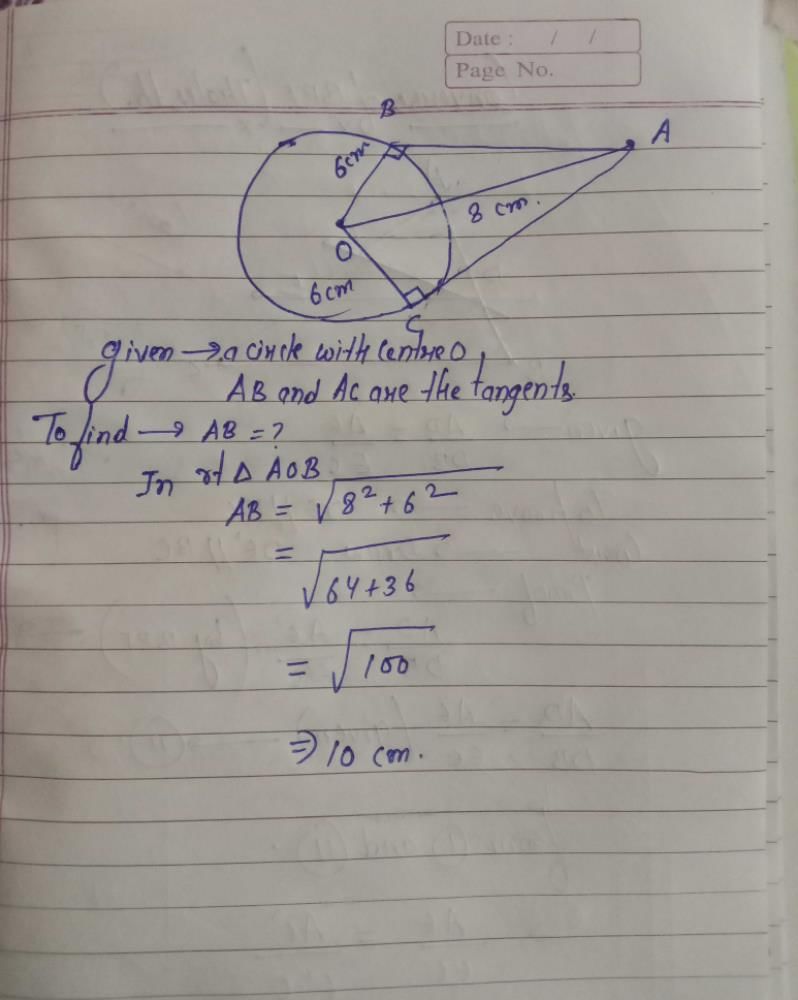 Date : / /
Page No.
B
A
6cm
8 cm.
O
6cm
C
given → a circle with centre O,
AB and AC are the tangents.
To find → AB = ?
In rt Δ AOB
AB = √8² + 6²
= √64 + 36
= √100
⇒ 10 cm.